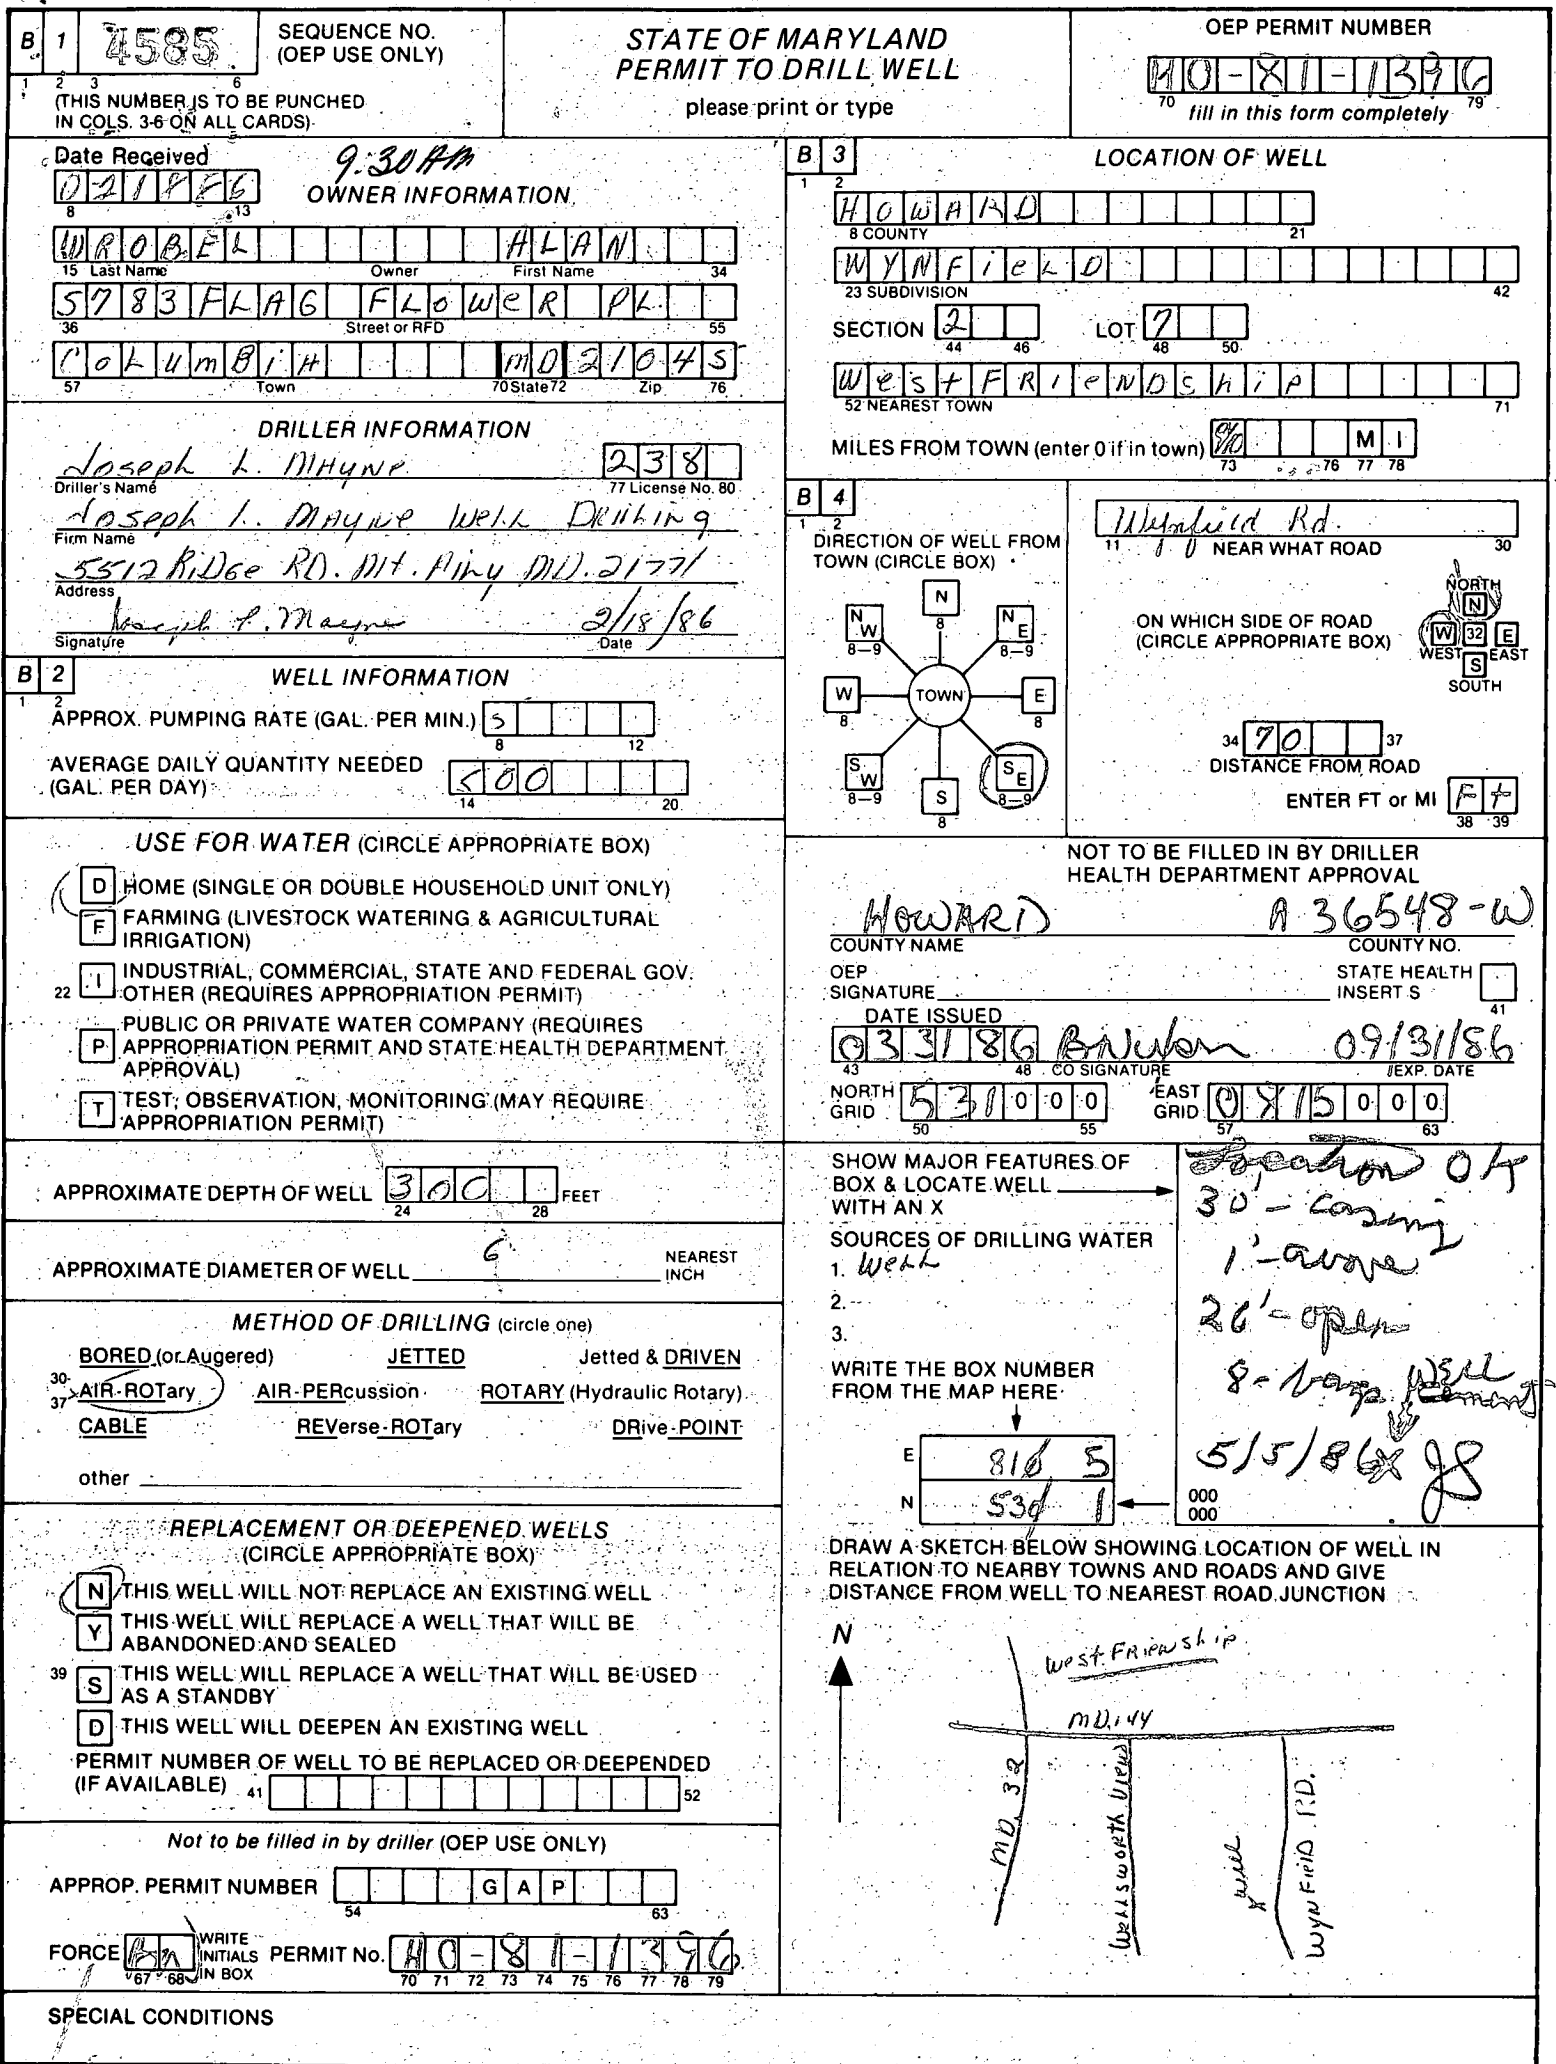 B 1 4585 SEQUENCE NO. (OEP USE ONLY)
1 2 3 6
(THIS NUMBER IS TO BE PUNCHED
IN COLS. 3-6 ON ALL CARDS)
STATE OF MARYLAND
PERMIT TO DRILL WELL
please print or type
OEP PERMIT NUMBER
HO-81-1396
70 79
fill in this form completely
Date Received 9:30 AM
021886
8 13
OWNER INFORMATION
WROBEL ALAN
15 Last Name Owner First Name 34
5783 FLAG FLOWER PL
36 Street or RFD 55
COLUMBIA MD 21045
57 Town 70 State 72 Zip 76
DRILLER INFORMATION
Joseph L. Mayne 238
Driller's Name 77 License No. 80
Joseph L. Mayne Well Drilling
Firm Name
5512 Ridge RD. Mt. Airy MD. 21771
Address
Joseph L. Mayne 2/18/86
Signature Date
B 2 WELL INFORMATION
1 2
APPROX. PUMPING RATE (GAL. PER MIN.) 5
8 12
AVERAGE DAILY QUANTITY NEEDED
(GAL. PER DAY) 500
14 20
USE FOR WATER (CIRCLE APPROPRIATE BOX)
D HOME (SINGLE OR DOUBLE HOUSEHOLD UNIT ONLY)
F FARMING (LIVESTOCK WATERING & AGRICULTURAL
IRRIGATION)
22 I INDUSTRIAL, COMMERCIAL, STATE AND FEDERAL GOV.
OTHER (REQUIRES APPROPRIATION PERMIT)
P PUBLIC OR PRIVATE WATER COMPANY (REQUIRES
APPROPRIATION PERMIT AND STATE HEALTH DEPARTMENT
APPROVAL)
T TEST, OBSERVATION, MONITORING (MAY REQUIRE
APPROPRIATION PERMIT)
APPROXIMATE DEPTH OF WELL 300 FEET
24 28
APPROXIMATE DIAMETER OF WELL 6 NEAREST
INCH
METHOD OF DRILLING (circle one)
BORED (or Augered) JETTED Jetted & DRIVEN
30-37 AIR-ROTary AIR-PERcussion ROTARY (Hydraulic Rotary)
CABLE REVerse-ROTary DRive-POINT
other
REPLACEMENT OR DEEPENED WELLS
(CIRCLE APPROPRIATE BOX)
N THIS WELL WILL NOT REPLACE AN EXISTING WELL
Y THIS WELL WILL REPLACE A WELL THAT WILL BE
ABANDONED AND SEALED
39 S THIS WELL WILL REPLACE A WELL THAT WILL BE USED
AS A STANDBY
D THIS WELL WILL DEEPEN AN EXISTING WELL
PERMIT NUMBER OF WELL TO BE REPLACED OR DEEPENDED
(IF AVAILABLE) 41 52
Not to be filled in by driller (OEP USE ONLY)
APPROP. PERMIT NUMBER GAP
54 63
FORCE Bn WRITE INITIALS IN BOX PERMIT No. HO-81-1396
67 68 70 71 72 73 74 75 76 77 78 79
SPECIAL CONDITIONS
B 3 LOCATION OF WELL
1 2
HOWARD
8 COUNTY 21
WYNFieLD
23 SUBDIVISION 42
SECTION 2 LOT 7
44 46 48 50
West FRIeNDship
52 NEAREST TOWN 71
MILES FROM TOWN (enter 0 if in town) MI
73 76 77 78
B 4
1 2
DIRECTION OF WELL FROM
TOWN (CIRCLE BOX)
N
8
NW NE
8-9 8-9
W TOWN E
8 8
SW SE
8-9 8-9
S
8
Wynfield Rd.
11 NEAR WHAT ROAD 30
ON WHICH SIDE OF ROAD
(CIRCLE APPROPRIATE BOX)
NORTH
N
W 32 E
WEST EAST
S
SOUTH
34 70 37
DISTANCE FROM ROAD
ENTER FT or MI Ft
38 39
NOT TO BE FILLED IN BY DRILLER
HEALTH DEPARTMENT APPROVAL
HOWARD A 36548-W
COUNTY NAME COUNTY NO.
OEP
SIGNATURE
STATE HEALTH
INSERT S
41
DATE ISSUED
033186 09/31/86
43 48 CO SIGNATURE EXP. DATE
NORTH
GRID 531000 EAST
GRID 0815000
50 55 57 63
SHOW MAJOR FEATURES OF
BOX & LOCATE WELL
WITH AN X
SOURCES OF DRILLING WATER
1. Well
2.
3.
WRITE THE BOX NUMBER
FROM THE MAP HERE
E 816 5
N 530 1
Location OK
30'- casing
1'- above
26'- open
8- bags
Well
5/5/86 X JS
000
000
DRAW A SKETCH BELOW SHOWING LOCATION OF WELL IN
RELATION TO NEARBY TOWNS AND ROADS AND GIVE
DISTANCE FROM WELL TO NEAREST ROAD JUNCTION
N
West FRIENShip
MD. 144
MD. 32
Wellsworth View
X Well
WYNFieLD RD.